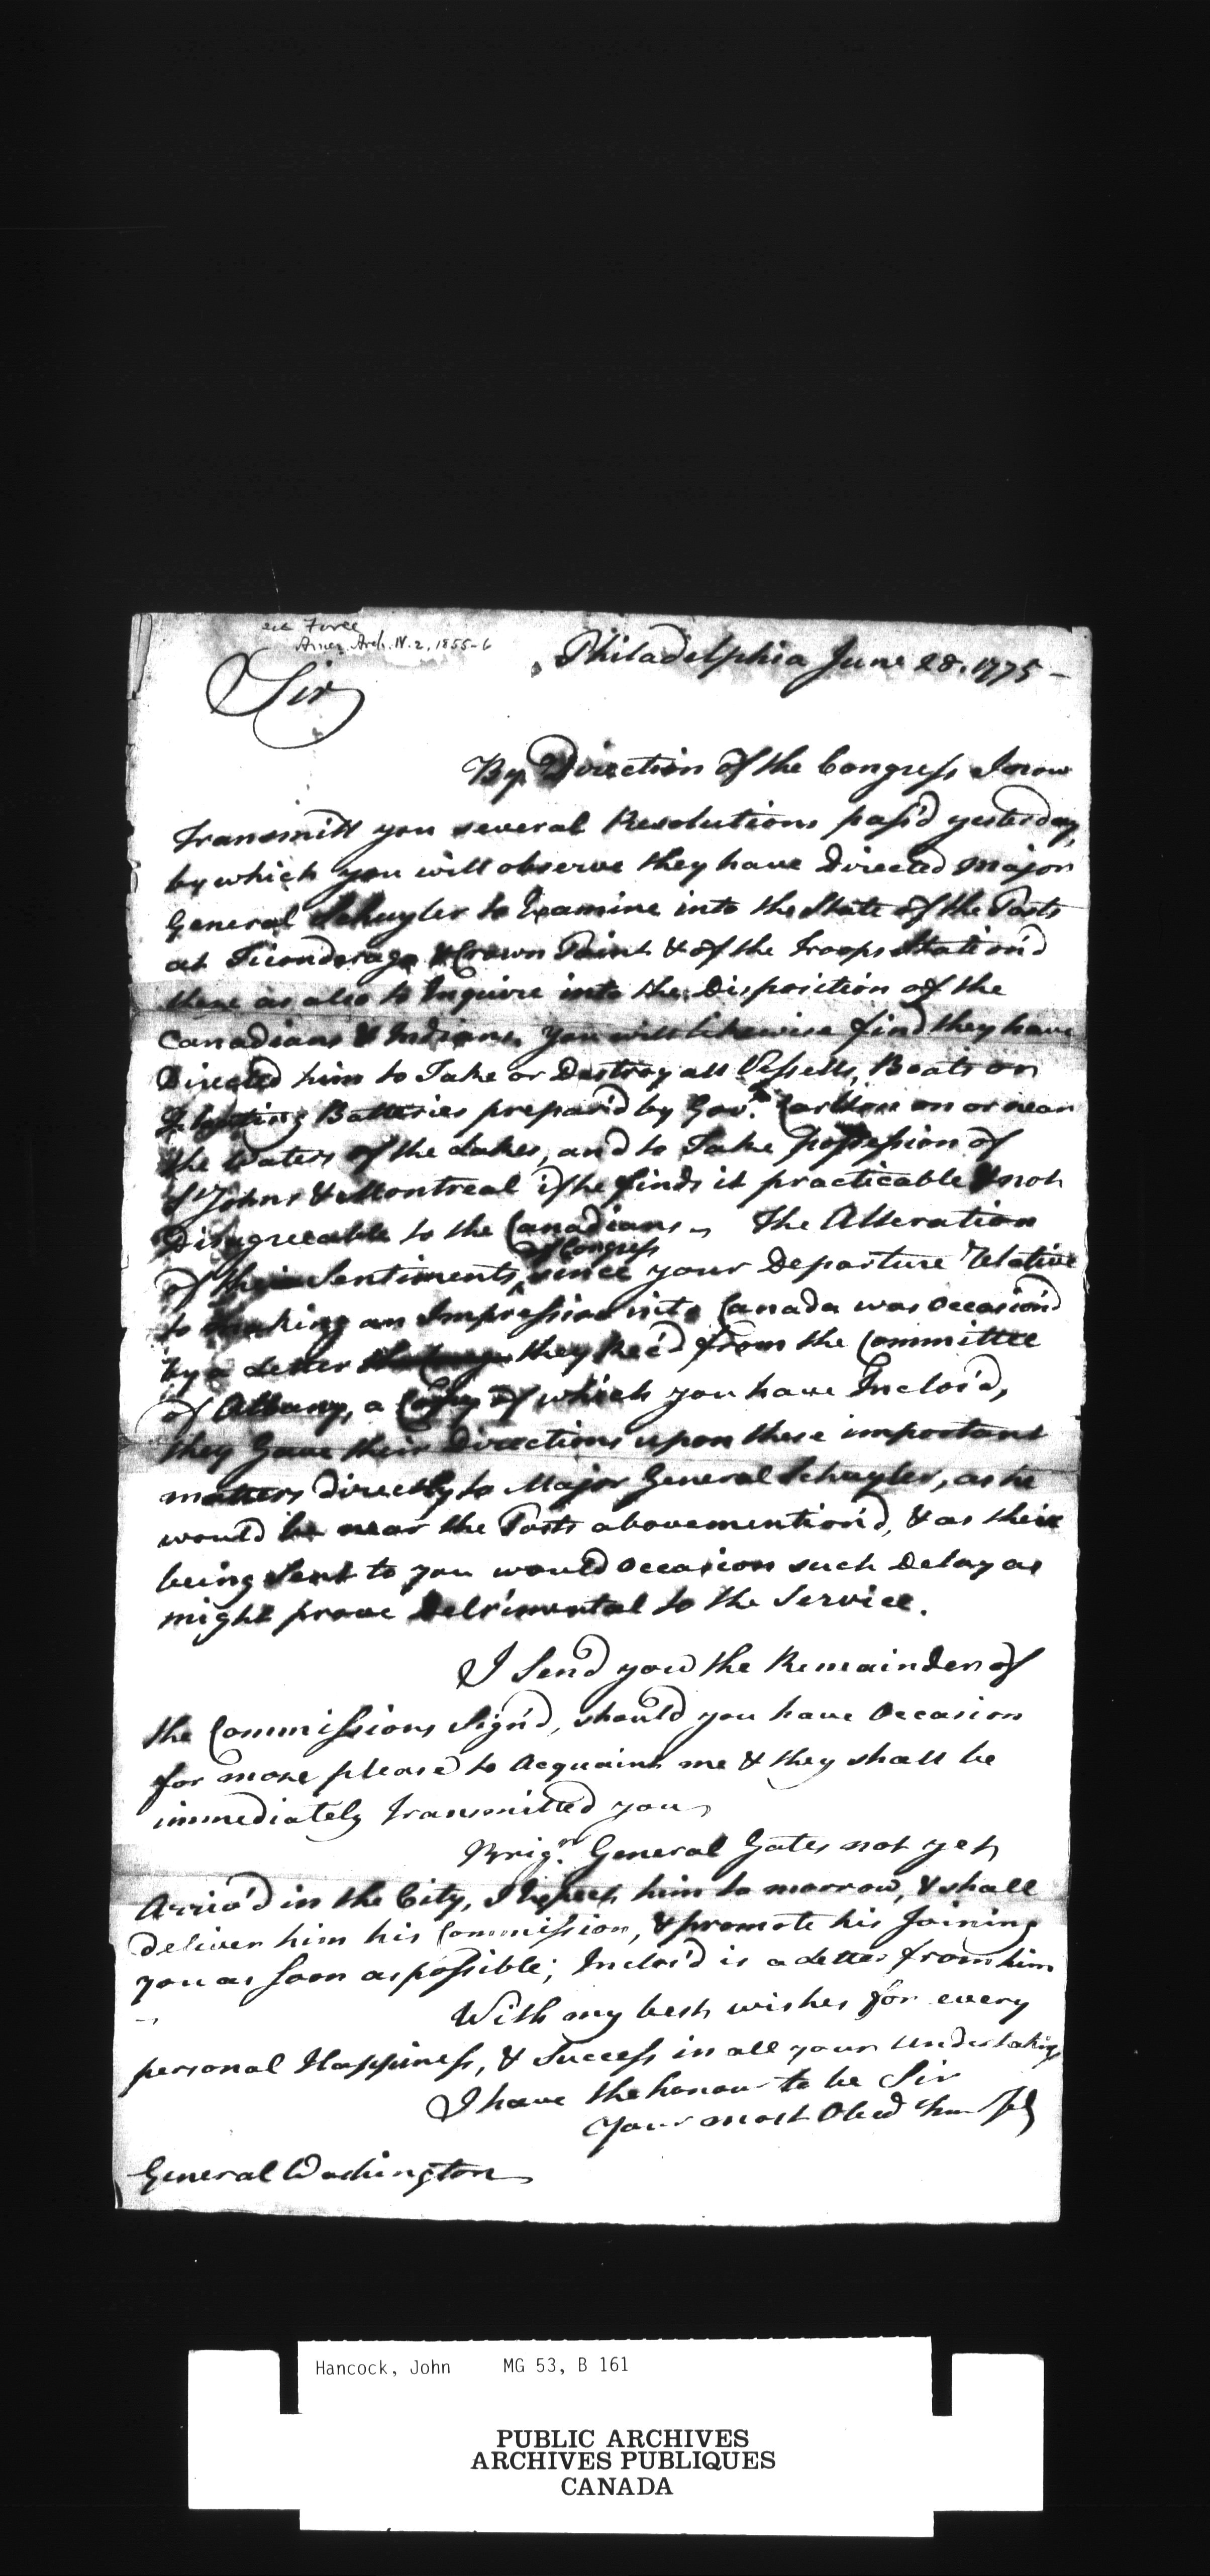 see Force
Amer. Arch. IV. 2, 1855-6
Philadelphia June 28. 1775 –
Sir
By Direction of the Congress I now
Transmitt you several Resolutions pass'd yesterday,
by which you will observe they have Directed Major
General Schuyler to Examine into the State of the Posts
at Ticonderoga & Crown Point & of the Troops Station'd
there as also to Inquire into the Disposition of the
Canadians & Indians. You will likewise find they have
Directed him to Take or Destroy all Vessells, Boats or
Floating Batteries prepar'd by Gov.r Carlton on or near
the Waters of the Lakes, and to Take possession of
St Johns & Montreal if he finds it practicable & not
Disagreeable to the Canadians – The Alteration
of Congress
of the Sentiments since your Departure Relative
to making an Impression into Canada was occasion'd
by a Letter they Rec'd from the Committee
of Albany, a Copy of which you have Inclos'd,
they Gave their Directions upon these important
matters directly to Major General Schuyler, as he
would be near the Posts abovemention'd, & as their
being Sent to you would occasion such Delay as
might prove Detrimental to the Service.
I Send you the Remainder of
the Commissions Sign'd, should you have Occasion
for more please to Acquaint me & they shall be
immediately transmitted you
Brig.r General Gates not yet
Arriv'd in the City, I Expect him to morrow, & shall
deliver him his Commission, & promote his Joining
you as soon as possible; Inclos'd is a Letter from him
–
With my best wishes for every
personal Happiness, & Success in all your undertakings
I have the honour to be Sir
Your most Obed hum
General Washington
Hancock, John MG 53, B 161
PUBLIC ARCHIVES
ARCHIVES PUBLIQUES
CANADA